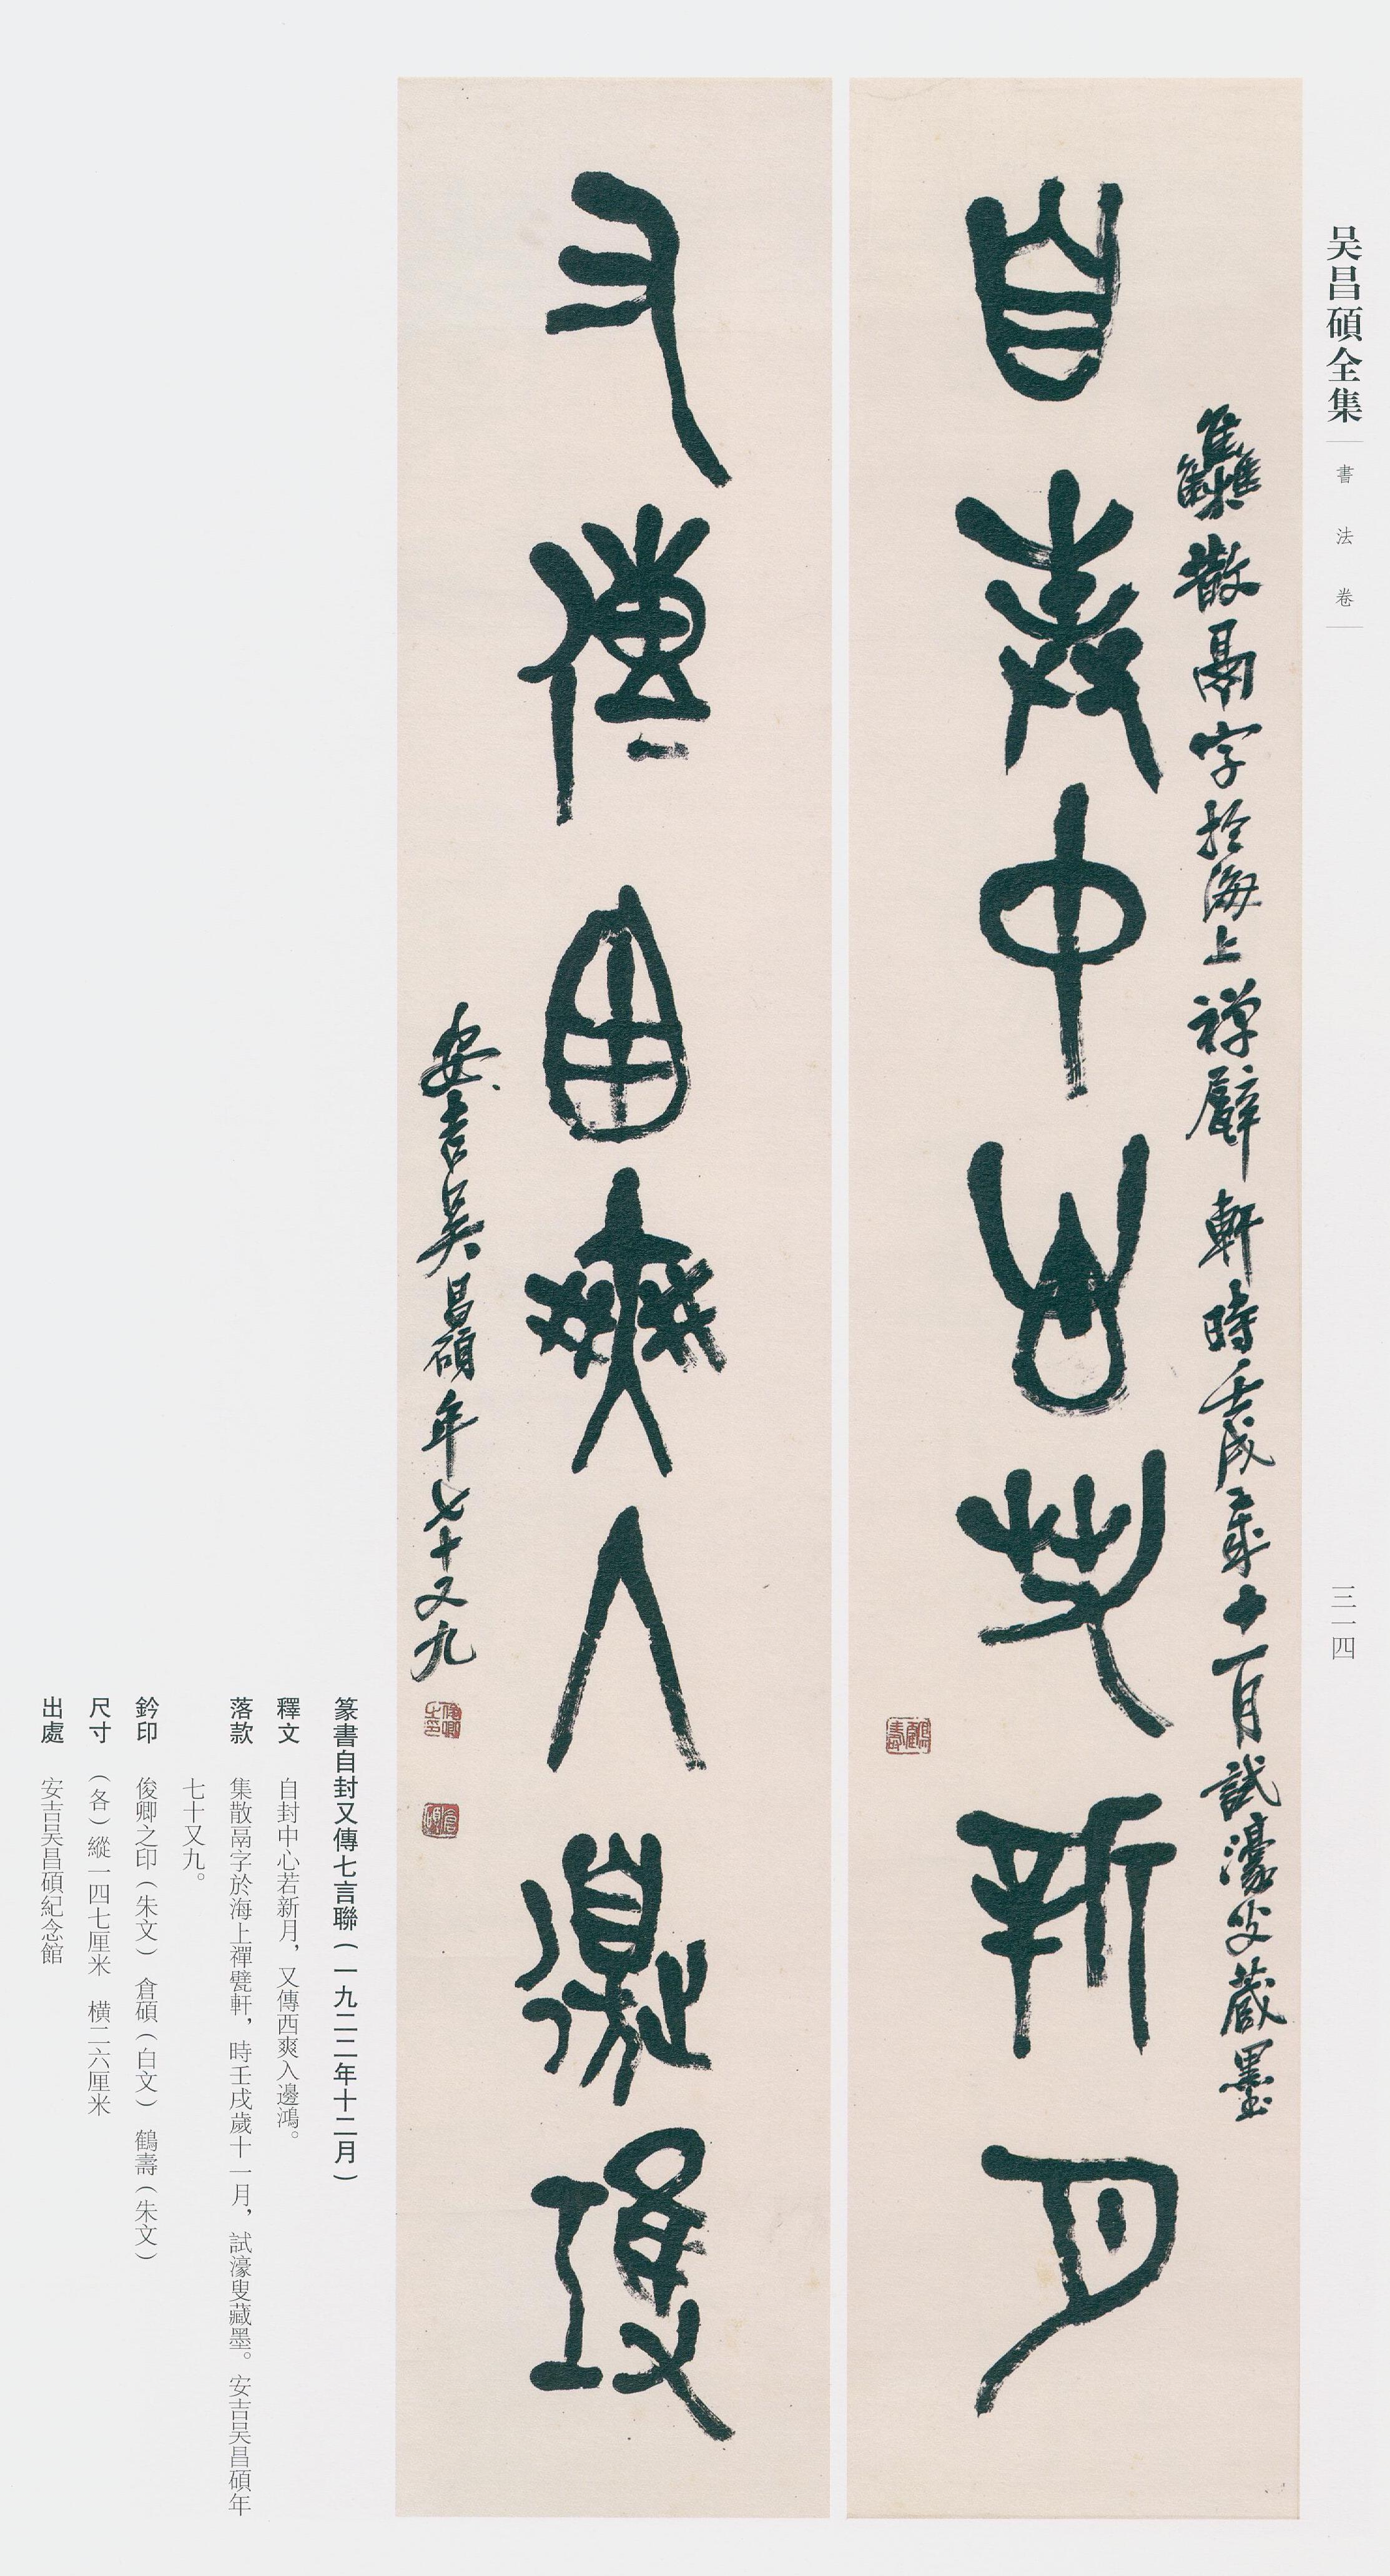 吴昌碩全集
書法卷
三一四
雧散鬲字於海上禅甓軒時壬戌歲十一月試濠叟藏墨
自封中心若新月
鶴壽
又傳西爽入邊鴻
安吉吴昌碩年七十又九
俊卿之印
倉碩
篆書自封又傳七言聯(一九二二年十二月)
釋文 自封中心若新月,又傳西爽入邊鴻。
落款 集散鬲字於海上禪甓軒,時壬戌歲十一月,試濠叟藏墨。安吉吴昌碩年
七十又九。
鈐印 俊卿之印(朱文) 倉碩(白文) 鶴壽(朱文)
尺寸 (各)縱一四七厘米 横二六厘米
出處 安吉吴昌碩紀念館